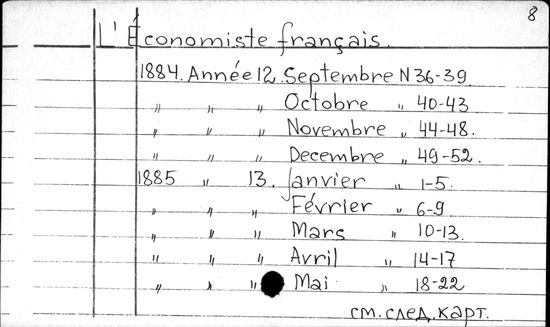 8
L'Économiste français.
1884. Année 12. Septembre N 36-39.
" " " Octobre " 40-43.
" " " Novembre " 44-48.
" " " Decembre " 49-52.
1885 " 13. Janvier " 1-5.
" " " Février " 6-9.
" " " Mars " 10-13.
" " " Avril " 14-17
" " " Mai " 18-22
см. след. карт.